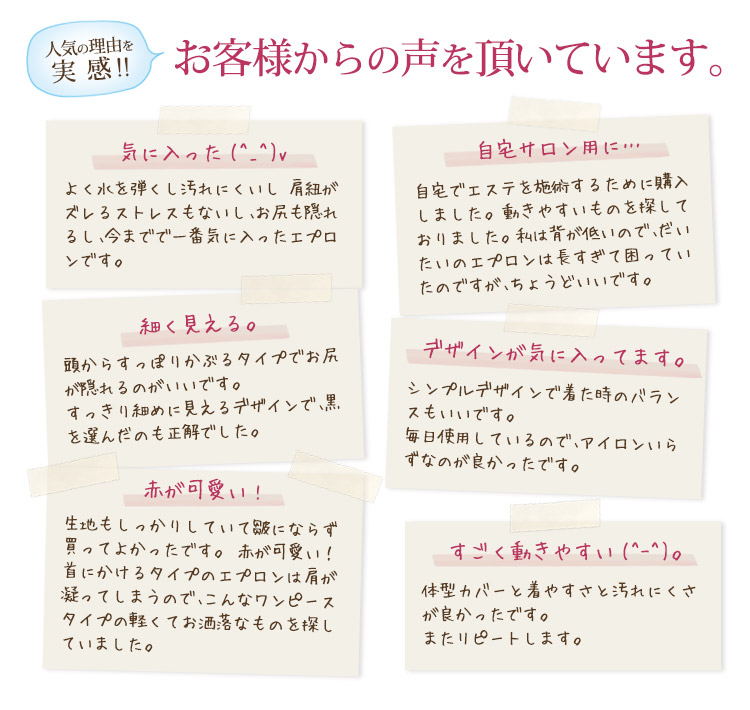 人気の理由を
実感!!
お客様からの声を頂いています。
気に入った(^_^)v
よく水を弾くし汚れにくいし 肩紐が
ズレるストレスもないし、お尻も隠れ
るし、今までで一番気に入ったエプロ
ンです。
自宅サロン用に…
自宅でエステを施術するために購入
しました。動きやすいものを探して
おりました。私は背が低いので、だい
たいのエプロンは長すぎて困ってい
たのですが、ちょうどいいです。
細く見える。
頭からすっぽりかぶるタイプでお尻
が隠れるのがいいです。
すっきり細めに見えるデザインで、黒
を選んだのも正解でした。
デザインが気に入ってます。
シンプルデザインで着た時のバラン
スもいいです。
毎日使用しているので、アイロンいら
ずなのが良かったです。
赤が可愛い!
生地もしっかりしていて皺にならず
買ってよかったです。 赤が可愛い!
首にかけるタイプのエプロンは肩が
凝ってしまうので、こんなワンピース
タイプの軽くてお洒落なものを探し
ていました。
すごく動きやすい(^-^)。
体型カバーと着やすさと汚れにくさ
が良かったです。
またリピートします。